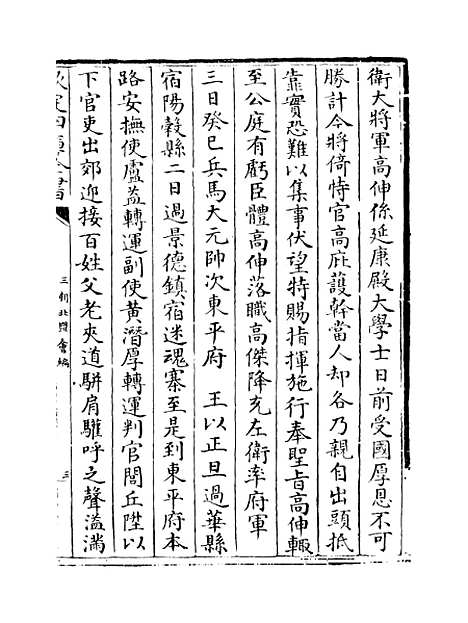 衛大將軍高伸係延康殿大學士日前受國厚恩不可
勝計今將倚恃官高庇護幹當人却各乃親自出頭抵
靠實恐難以集事伏望特賜指揮施行奉聖㫖高伸輙
至公庭有虧臣體高伸落職高傑降充左衛率府軍
三日癸巳兵馬大元帥次東平府 王以正旦過華縣
宿陽穀縣二日過景德鎮宿迷魂寨至是到東平府本
路安撫使盧益轉運副使黄潛厚轉運判官閭丘陞以
下官吏出郊迎接百姓父老夾道駢肩驩呼之聲溢滿
欽定四庫全書
三朝北盟會編
三